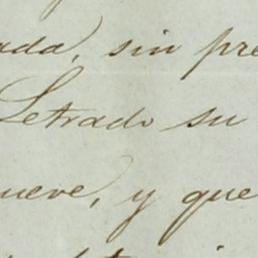 ada, sin pre
Letrado su
ueve, y que